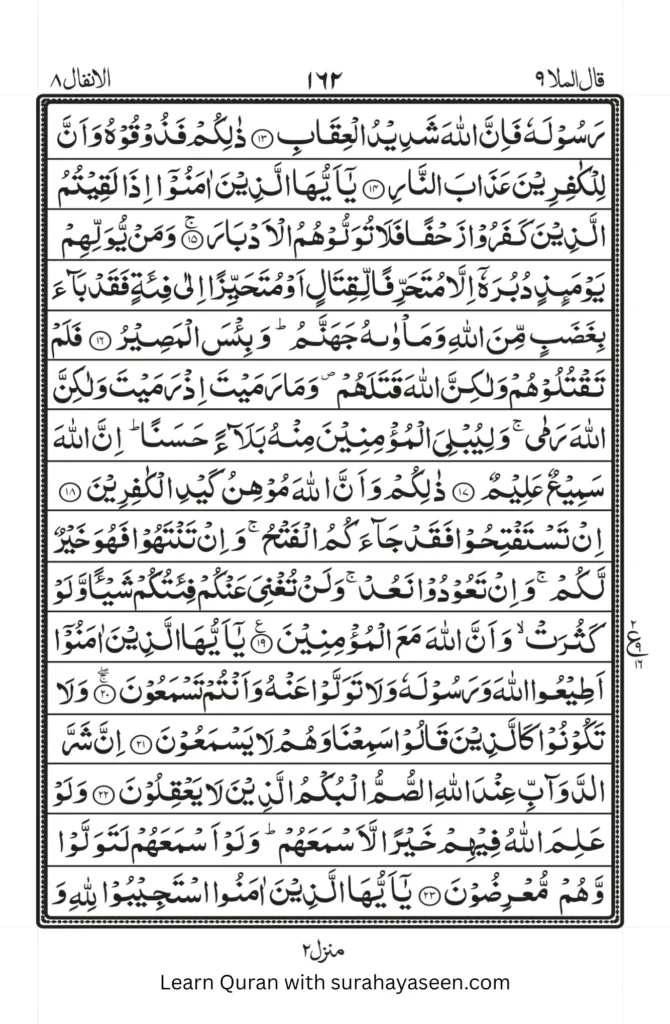 الانفال ٨ ١٦٢ قال الملا ٩
رَسُوۡلَهٗ فَاِنَّ اللّٰهَ شَدِيۡدُ الۡعِقَابِ ﴿۱۳﴾ ذٰلِكُمۡ فَذُوۡقُوۡهُ وَاَنَّ
لِلۡكٰفِرِيۡنَ عَذَابَ النَّارِ ﴿۱۴﴾ يٰۤاَيُّهَا الَّذِيۡنَ اٰمَنُوۡۤا اِذَا لَقِيۡتُمُ
الَّذِيۡنَ كَفَرُوۡا زَحۡفًا فَلَا تُوَلُّوۡهُمُ الۡاَدۡبَارَ ۚ ﴿۱۵﴾ وَمَنۡ يُّوَلِّهِمۡ
يَوۡمَٮِٕذٍ دُبُرَهٗۤ اِلَّا مُتَحَرِّفًا لِّقِتَالٍ اَوۡ مُتَحَيِّزًا اِلٰى فِئَةٍ فَقَدۡ بَآءَ
بِغَضَبٍ مِّنَ اللّٰهِ وَمَاۡوٰٮهُ جَهَنَّمُ‌ؕ وَبِئۡسَ الۡمَصِيۡرُ ﴿۱۶﴾ فَلَمۡ
تَقۡتُلُوۡهُمۡ وَلٰـكِنَّ اللّٰهَ قَتَلَهُمۡ ص وَمَا رَمَيۡتَ اِذۡ رَمَيۡتَ وَلٰـكِنَّ
اللّٰهَ رَمٰى‌ ۚ وَلِيُبۡلِىَ الۡمُؤۡمِنِيۡنَ مِنۡهُ بَلَاۤءً حَسَنًا‌ ؕ اِنَّ اللّٰهَ
سَمِيۡعٌ عَلِيۡمٌ ﴿۱۷﴾ ذٰلِكُمۡ وَاَنَّ اللّٰهَ مُوۡهِنُ كَيۡدِ الۡكٰفِرِيۡنَ ﴿۱۸﴾
اِنۡ تَسۡتَفۡتِحُوۡا فَقَدۡ جَآءَكُمُ الۡفَتۡحُ‌ ۚ وَاِنۡ تَنۡتَهُوۡا فَهُوَ خَيۡرٌ
لَّـكُمۡ‌ ۚ وَاِنۡ تَعُوۡدُوۡا نَـعُدۡ‌ ۚ وَلَنۡ تُغۡنِىَ عَنۡكُمۡ فِئَتُكُمۡ شَيۡـًٔـا وَّلَوۡ
كَثُرَتۡ ۙ وَاَنَّ اللّٰهَ مَعَ الۡمُؤۡمِنِيۡنَ ﴿۱۹﴾ ع يٰۤاَيُّهَا الَّذِيۡنَ اٰمَنُوۡۤا
٢ ع ٩ ١٦
اَطِيۡعُوا اللّٰهَ وَرَسُوۡلَهٗ وَلَا تَوَلَّوۡا عَنۡهُ وَاَنۡـتُمۡ تَسۡمَعُوۡنَ ۚ ﴿۲۰﴾ وَلَا
تَكُوۡنُوۡا كَالَّذِيۡنَ قَالُوۡا سَمِعۡنَا وَهُمۡ لَا يَسۡمَعُوۡنَ ﴿۲۱﴾ اِنَّ شَرَّ
الدَّوَآبِّ عِنۡدَ اللّٰهِ الصُّمُّ الۡبُكۡمُ الَّذِيۡنَ لَا يَعۡقِلُوۡنَ ﴿۲۲﴾ وَلَوۡ
عَلِمَ اللّٰهُ فِيۡهِمۡ خَيۡرًا لَّاَسۡمَعَهُمۡ‌ؕ وَلَوۡ اَسۡمَعَهُمۡ لَـتَوَلَّوۡا
وَّهُمۡ مُّعۡرِضُوۡنَ ﴿۲۳﴾ يٰۤاَيُّهَا الَّذِيۡنَ اٰمَنُوا اسۡتَجِيۡبُوۡا لِلّٰهِ وَ
منزل ٢
Learn Quran with surahayaseen.com